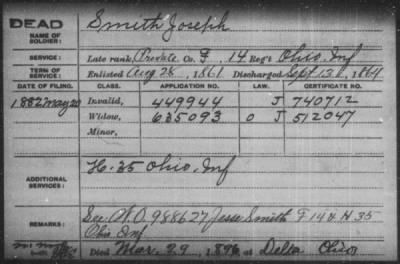 DEAD
NAME OF SOLDIER: Smith Joseph
SERVICE: Late rank, Private Co. F, 14 Reg't Ohio Inf
TERM OF SERVICE: Enlisted Aug 28, 1861 Discharged Sept 13, 1864
DATE OF FILING. CLASS. APPLICATION NO. LAW. CERTIFICATE NO.
1882 May 20 Invalid, 449944 J 740712
Widow, 635093 O J 512047
Minor,
ADDITIONAL SERVICES: H. 35 Ohio Inf
REMARKS: See W.O. 988627 Jesse Smith F 14 & H 35
Ohio Inf
Died Mar. 29, 1896 at Delta Ohio